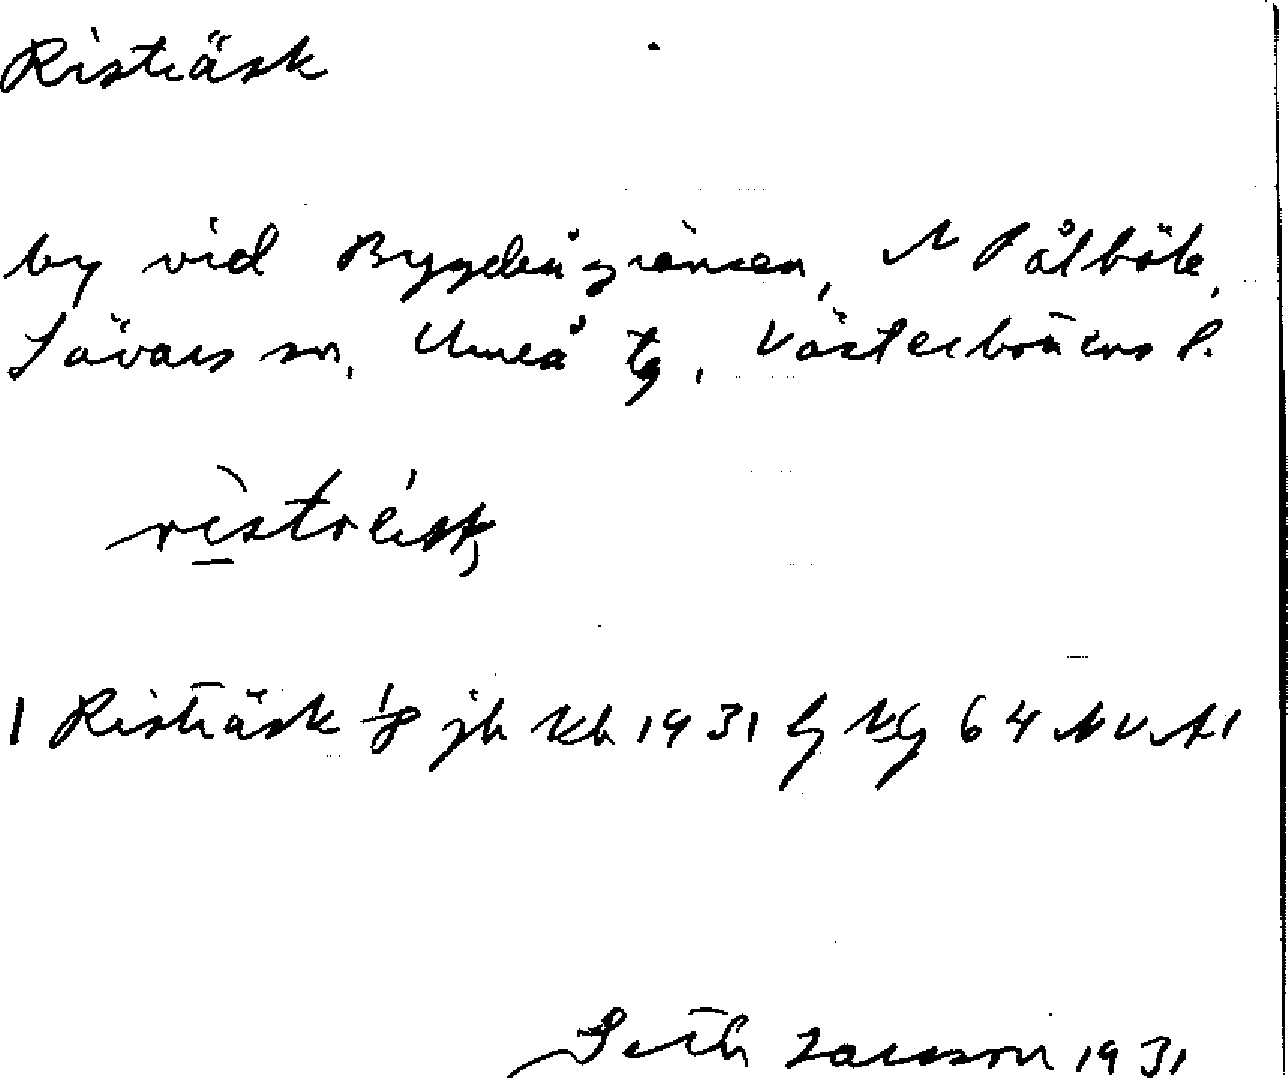 Risträsk
by vid Bygdeågränsen, N Pålböle,
Sävars sn, Umeå tg, Västerbottens l.
risträsk
1 Risträsk jb Kb 1931 64 NV A1
Seth Larsson 1931